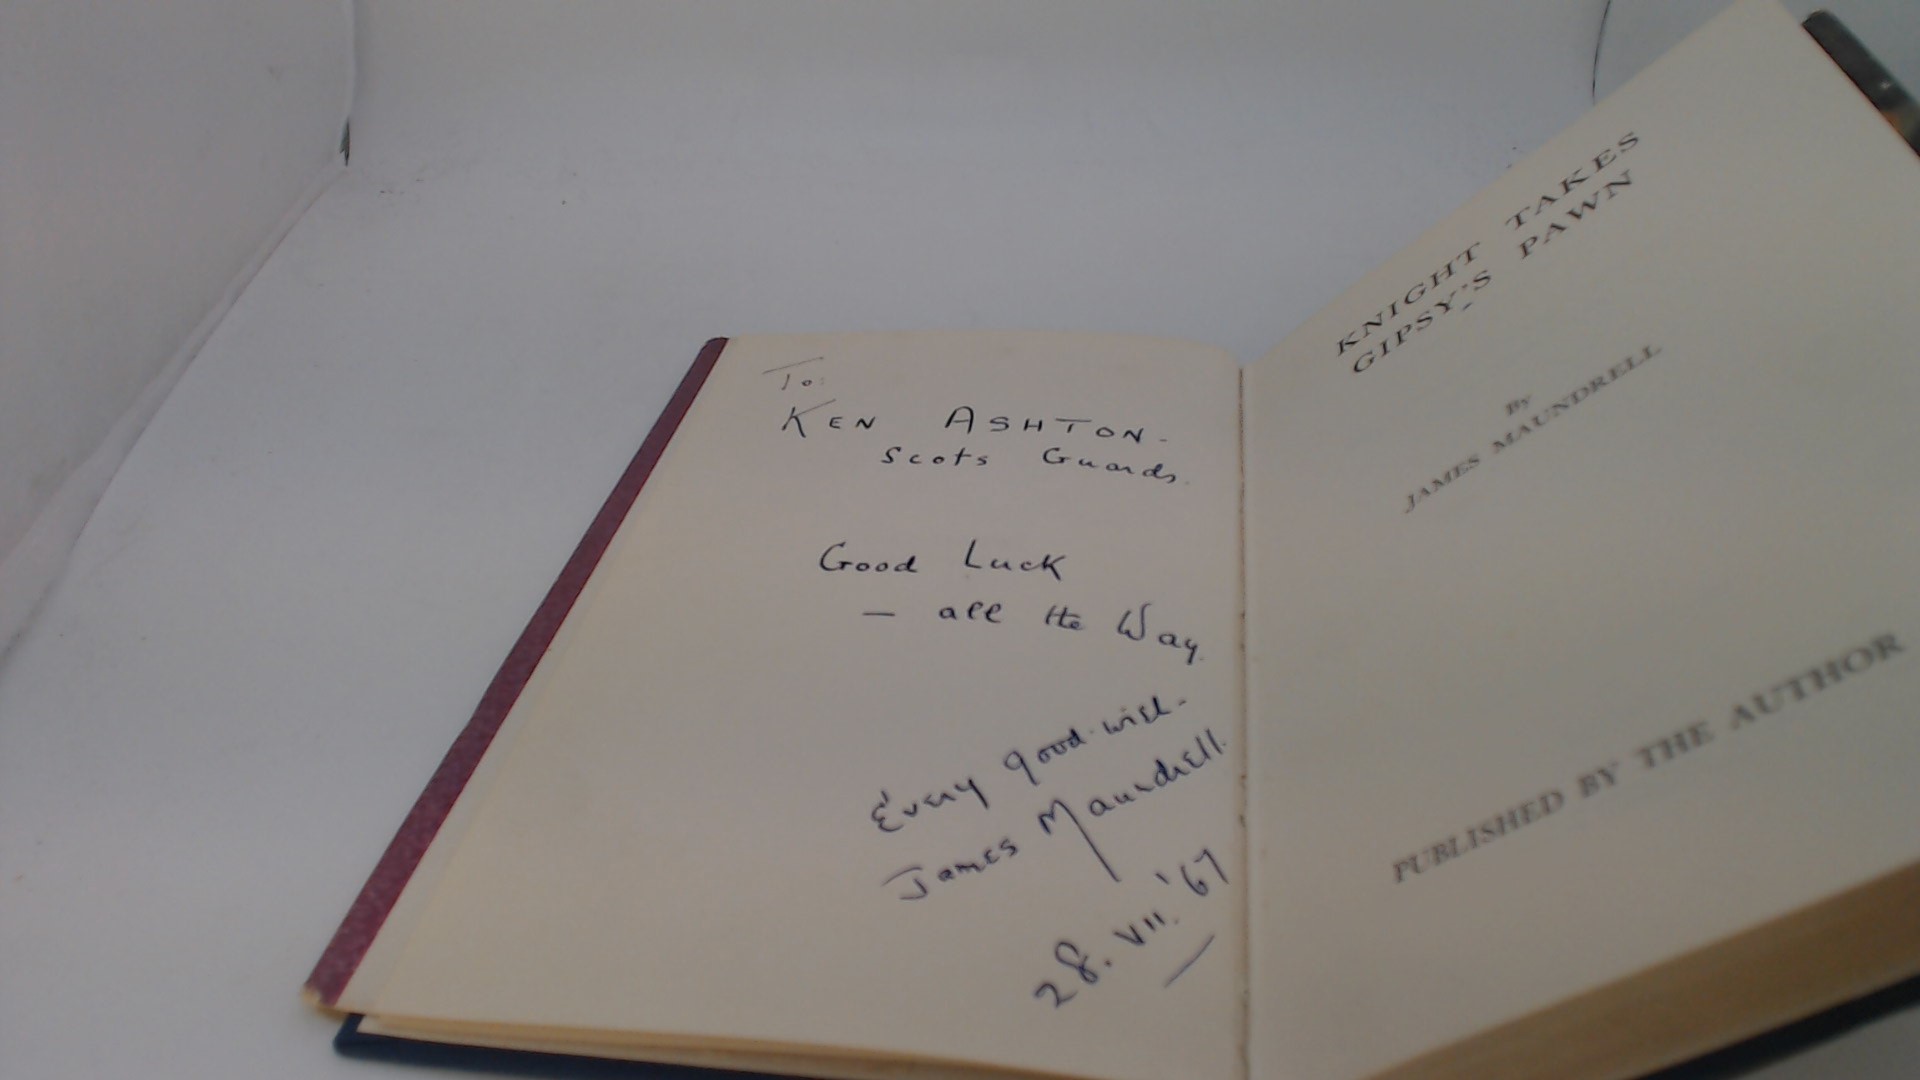 To:
KEN ASHTON.
Scots Guards.
Good Luck
— all the Way.
Every good wish.
James Maundrell.
28. VII. '67
KNIGHT TAKES
GIPSY'S PAWN
By
JAMES MAUNDRELL
PUBLISHED BY THE AUTHOR